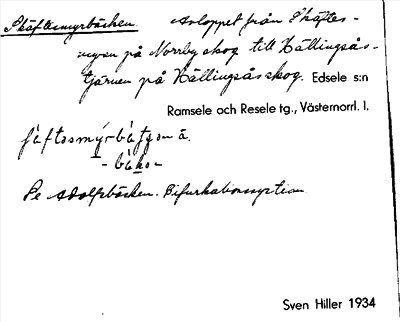 Skäftesmyrbäcken Avloppet från Skäftes-
myran på Norrby skog till Hällingsås-
tjärnen på Hällingsås skog. Edsele s:n
Ramsele och Resele tg., Västernorrl. l.
- bäkə -
Se Adolfsbäcken. Bifurkations
Sven Hiller 1934